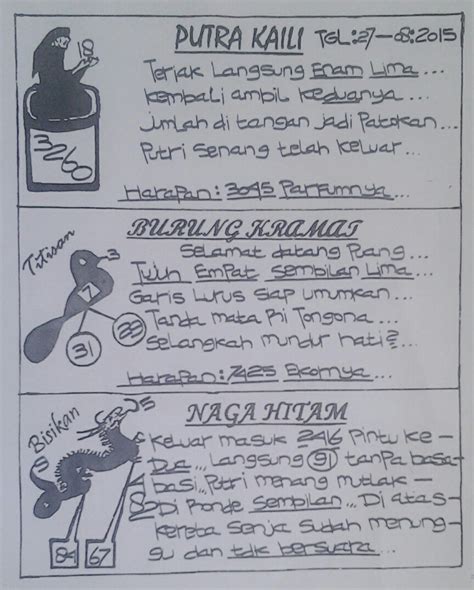 PUTRA KAILI TGL:27-08:2015
Terjak Langsung Enam Lima...
Kembali ambil Keduanya...
Jumlah di tangan Jadi Patokan...
Putri Senang telah Keluar...
3260
Harapan: 3045 Parfumnya...
BURUNG KRAMAT
Titisan
3
7
31
39
Selamat datang Piang...
Tujuh Empat Sembilan Lima...
Garis Lurus Siap umumkan...
Tanda mata Pi Tongona...
Selangkah mundur hati?...
Harapan: 7425 Ekornya...
NAGA HITAM
Bisikan
5
84
67
Keluar masuk 246 Pintu ke-
Dua,,, Langsung 91 tanpa basa-
basi,,, Putri menang mutlak-
Di Ronde Sembilan,,, Di atas-
Kereta Senja Sudah menung-
gu dan tdk bersuara...